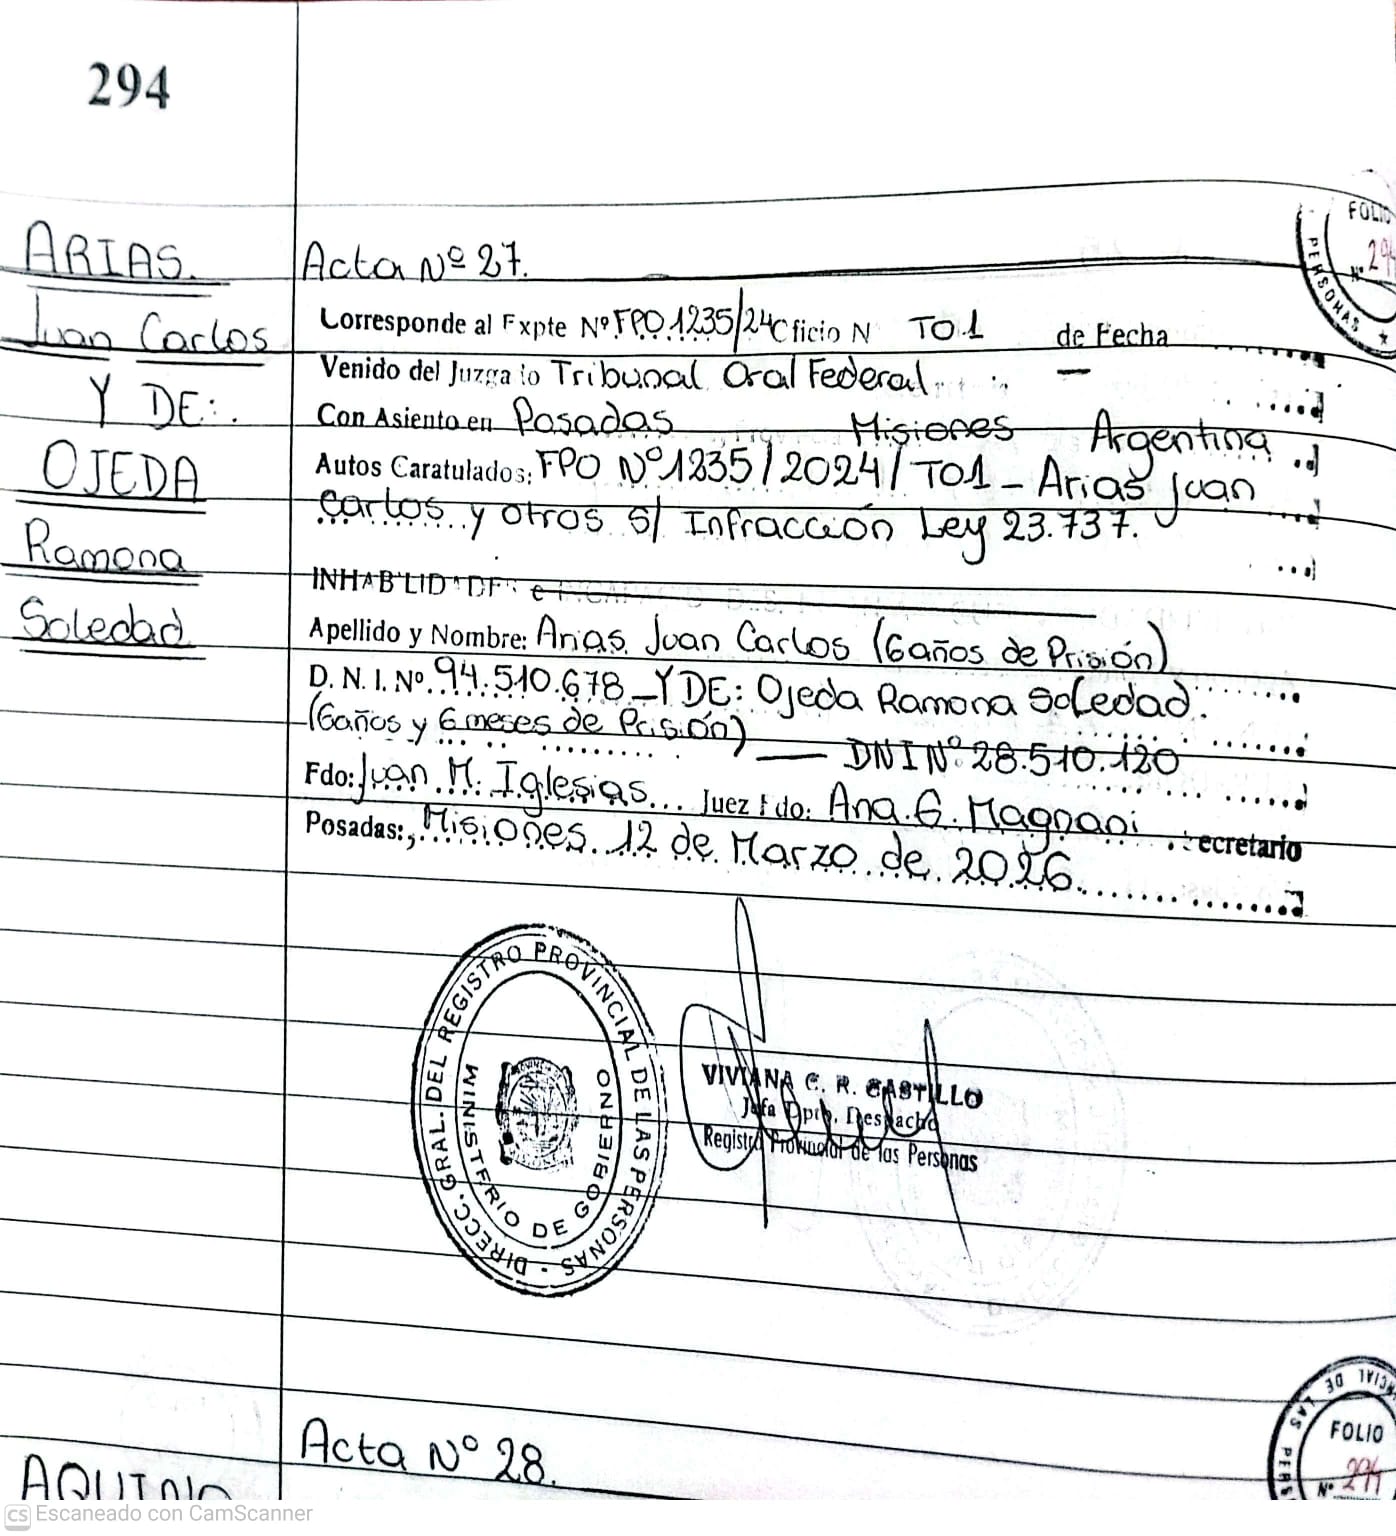 294
FOLIO
Nº 294
PERSONAS
ARIAS.
Juan Carlos
Y DE:.
OJEDA
Ramona
Soledad
Acta Nº 27.
Corresponde al Expte Nº FPO 1235/24 Oficio N TO1 de Fecha
Venido del Juzgado Tribunal Oral Federal —
Con Asiento en Posadas Misiones Argentina
Autos Caratulados: FPO Nº 1235/2024/TO1 - Arias Juan
Carlos y otros s/ Infracción Ley 23.737.
INHABILIDADES e
Apellido y Nombre: Arias Juan Carlos (6 años de Prisión)
D. N. I. Nº 94.510.678 - Y DE: Ojeda Ramona Soledad.
(6 años y 6 meses de Prisión) — DNI Nº 28.510.120
Fdo: Juan M. Iglesias... Juez Fdo: Ana. G. Magnani secretario
Posadas:, Misiones. 12 de Marzo de 2026
DIRECC. GRAL. DEL REGISTRO PROVINCIAL DE LAS PERSONAS
MINISTERIO DE GOBIERNO
VIVIANA C. R. CASTILLO
Jefa Dpto. Despacho
Registro Provincial de las Personas
Acta Nº 28.
AQUINO
DE LAS PERS
FOLIO
Nº 294
CS Escaneado con CamScanner